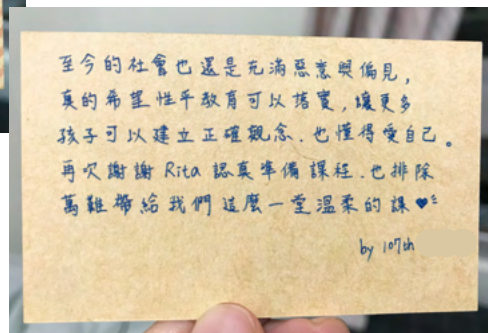 至今的社會也還是充滿惡意與偏見，
真的希望性平教育可以落實，讓更多
孩子可以建立正確觀念、也懂得愛自己。
再次謝謝 Rita 認真準備課程、也排除
萬難帶給我們這麼一堂溫柔的課♥
by 107th